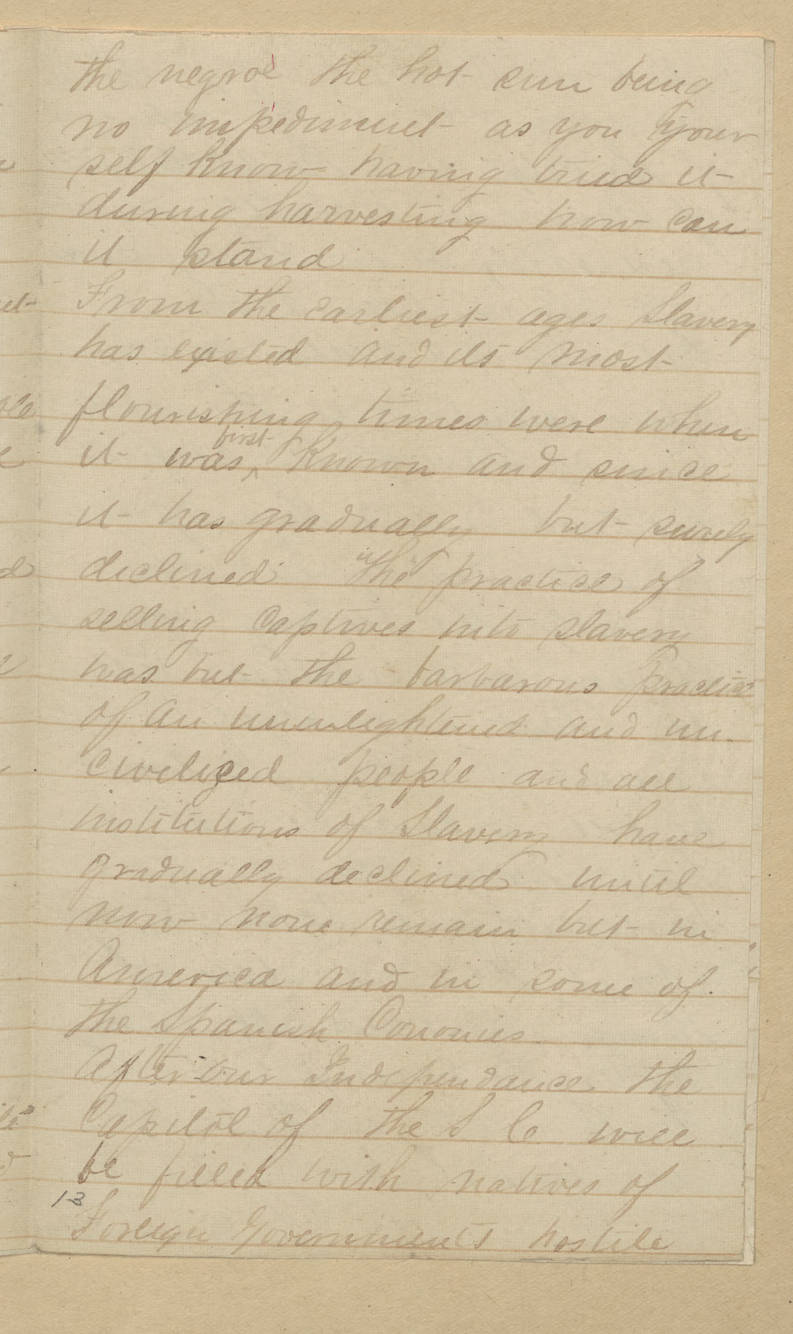 the negroe the hot sun being
no impediment as you your
self know having tried it
during harvesting how can
it stand
From the earliest ages Slavery
has existed and its most
flourishing times were when
it was first known and since
it has gradually but surely
declined "The practice of
selling captives into slavery
was but the barbarous practice
of an unenlightened and un-
civilized people and all
institutions of Slavery have
gradually declined until
now none remain but in
America and in some of
the Spanish Conomies
After our Independance the
Capitol of the S C will
be filled with natives of
13
Foreign Governments hostile